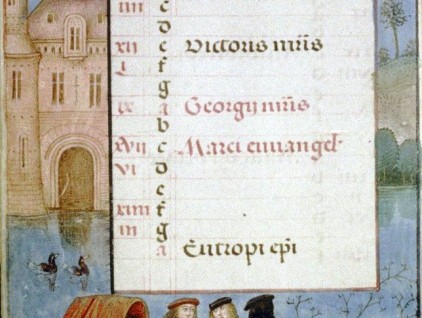 iiii c
D
xii e Victoris mr̄is
i f
g
ix a Georgij mr̄is
b
xvij c Marci euuangel
vi D
e
xiiii f
iii g
a Eutropi ep̄i